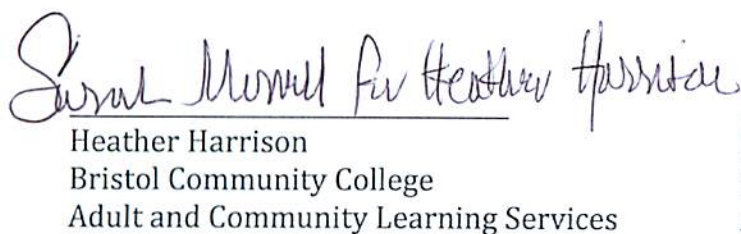 Sarah Morrell for Heather Harrison
Heather Harrison
Bristol Community College
Adult and Community Learning Services